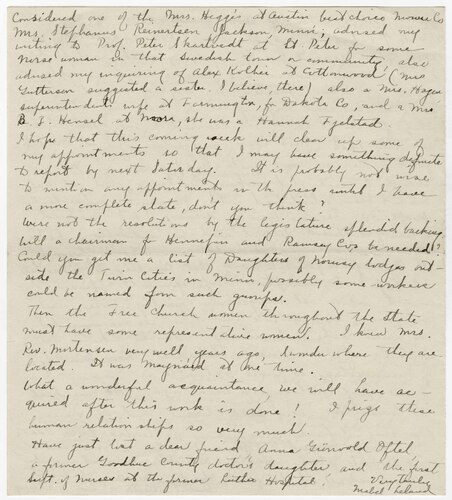 Considered one of the Mrs. Hegge's at Austin best choice Mower Co
Mrs. Stephanus Reinertsen, Jackson, Minn; advised my
writing to Prof. Peter at St Peter for some
Norse woman in that Swedish town or community, also
advised my inquiring of Alex Kolhei at Cottonwood (Mrs
Guttersen suggested a sister I believe, there) also a Mrs. Hagen
superintendent's wife at Farmington, for Dakota Co, and a Mrs
B. F. Hensel at Moora, she was a Hannah Fjelstad.
I hope that this coming week will clear up some of
my appointments so that I may have something definite
to report by next Saturday. It is probably not wise
to mention any appointments in the press until I have
a more complete slate, don't you think?
Were not the resolutions by the legislature splendid backing
Will a chairman for Hennepin and Ramsey Co's be needed?
Could you get me a list of Daughters of Norway lodges out-
side the Twin Cities in Minn, possibly some workers
could be named from such groups.
Then the Free Church women throughout the State
must have some representative women. I knew Mrs.
Rev. Mortensen very well years ago, wonder where they are
located. It was Maynard at one time.
What a wonderful acquaintance, we will have ac-
quired after this work is done! I prize these
human relationships so very much.
Have just lost a dear friend Anna Günvold Oftel,
a former Goodhue County doctor's daughter, and the first
Supt. of Nurses at the former Luther Hospital.
Very truly
Mabel Leland